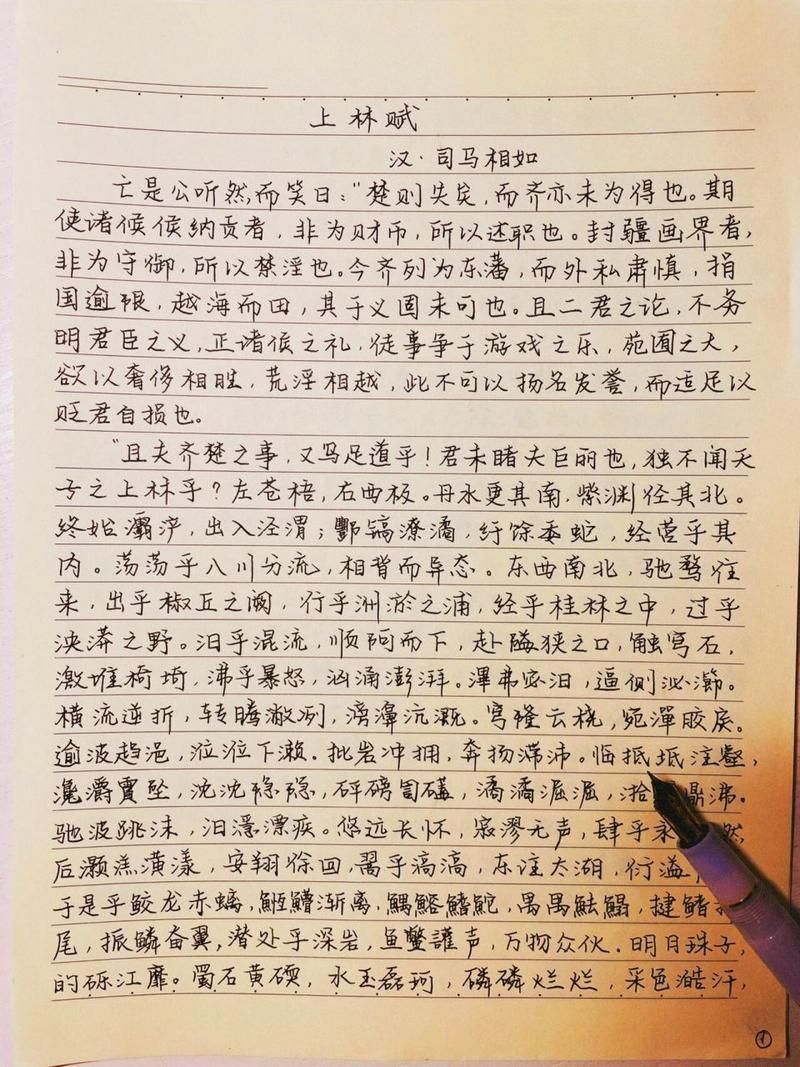 上林赋
汉·司马相如
亡是公听然而笑曰："楚则失矣，而齐亦未为得也。期
使诸侯侯纳贡者，非为财币，所以述职也。封疆画界者，
非为守御，所以禁淫也。今齐列为东藩，而外私肃慎，捐
国逾限，越海而田，其于义固未可也。且二君之论，不务
明君臣之义，正诸侯之礼，徒事争于游戏之乐，苑囿之大，
欲以奢侈相胜，荒淫相越，此不可以扬名发誉，而适足以
贬君自损也。
"且夫齐楚之事，又焉足道乎！君未睹夫巨丽也，独不闻天
子之上林乎？左苍梧，右西极。丹水更其南，紫渊径其北。
终始灞浐，出入泾渭；酆镐潦潏，纡馀委蛇，经营乎其
内。荡荡乎八川分流，相背而异态。东西南北，驰骛往
来，出乎椒丘之阙，行乎洲淤之浦，经乎桂林之中，过乎
泱漭之野。汩乎混流，顺阿而下，赴隘狭之口，触穹石，
激堆埼，沸乎暴怒，汹涌澎湃。滭弗宓汩，逼侧泌瀄。
横流逆折，转腾潎洌，滂濞沆溉。穹隆云桡，宛潬胶戾。
逾波趋浥，涖涖下濑。批岩冲拥，奔扬滞沛。临坻注壑，
瀺灂霣坠，沈沈隐隐，砰磅訇礚，潏潏淈淈，湁鼎沸。
驰波跳沫，汩漂疾。悠远长怀，寂漻无声，肆乎永然
后灏溔潢漾，安翔徐回，翯乎滈滈，东注太湖，衍溢
于是乎鲛龙赤螭，䱭䲛渐离，鰅鰫鳍鮀，禺禺魼鳎，揵鳍
尾，振鳞奋翼，潜处乎深岩，鱼鳖讙声，万物众伙。明月珠子，
的砾江靡。蜀石黄碝，水玉磊砢，磷磷烂烂，采色澔汗，
1